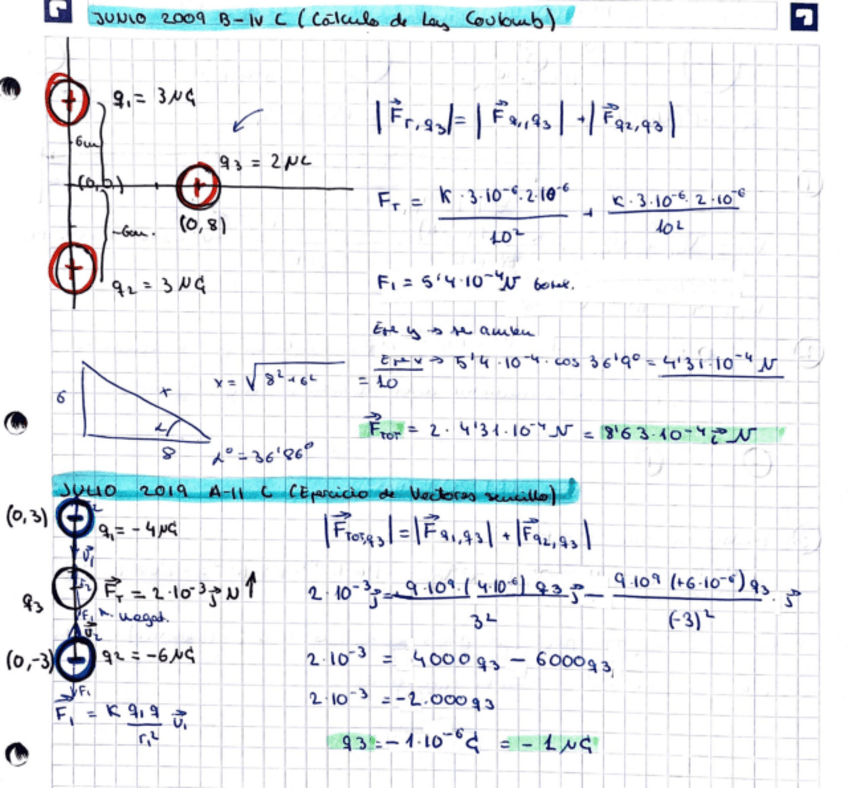 JUNIO 2009 B-IV C (Cálculo de Ley Coulomb)
q₁ = 3 μC
6cm
(0,0)
q₃ = 2 μC
(0,8)
-6cm.
q₂ = 3 μC
|F⃗T,q3| = |F⃗q1,q3| + |F⃗q2,q3|
FT = K·3·10⁻⁶·2·10⁻⁶ / 10² + K·3·10⁻⁶·2·10⁻⁶ / 10²
F₁ = 5'4·10⁻⁴ N
Eje y → se anulan
Eje x → 5'4·10⁻⁴·cos 36'9º = 4'31·10⁻⁴ N
6
x
α
8
x = √8²+6² = 10
αº = 36'86º
F⃗TOT = 2·4'31·10⁻⁴ N = 8'63·10⁻⁴ i⃗ N
JULIO 2019 A-II C (Ejercicio de Vectores sencillo)
(0,3)
q₁ = -4 μC
v⃗₁
q₃
F⃗T = 2·10⁻³ j⃗ N ↑
F₁
negat.
v⃗₂
(0,-3)
q₂ = -6 μC
F₁
F⃗₁ = K q₁q / r₁² v⃗₁
|F⃗TOT,q3| = |F⃗q1,q3| + |F⃗q2,q3|
2·10⁻³ j⃗ = 9·10⁹·(4·10⁻⁶) q3 / 3² j⃗ − 9·10⁹ (+6·10⁻⁶) q3 / (-3)² · j⃗
2·10⁻³ = 4000 q3 − 6000 q3
2·10⁻³ = -2.000 q3
q3 = -1·10⁻⁶ C = -1 μC